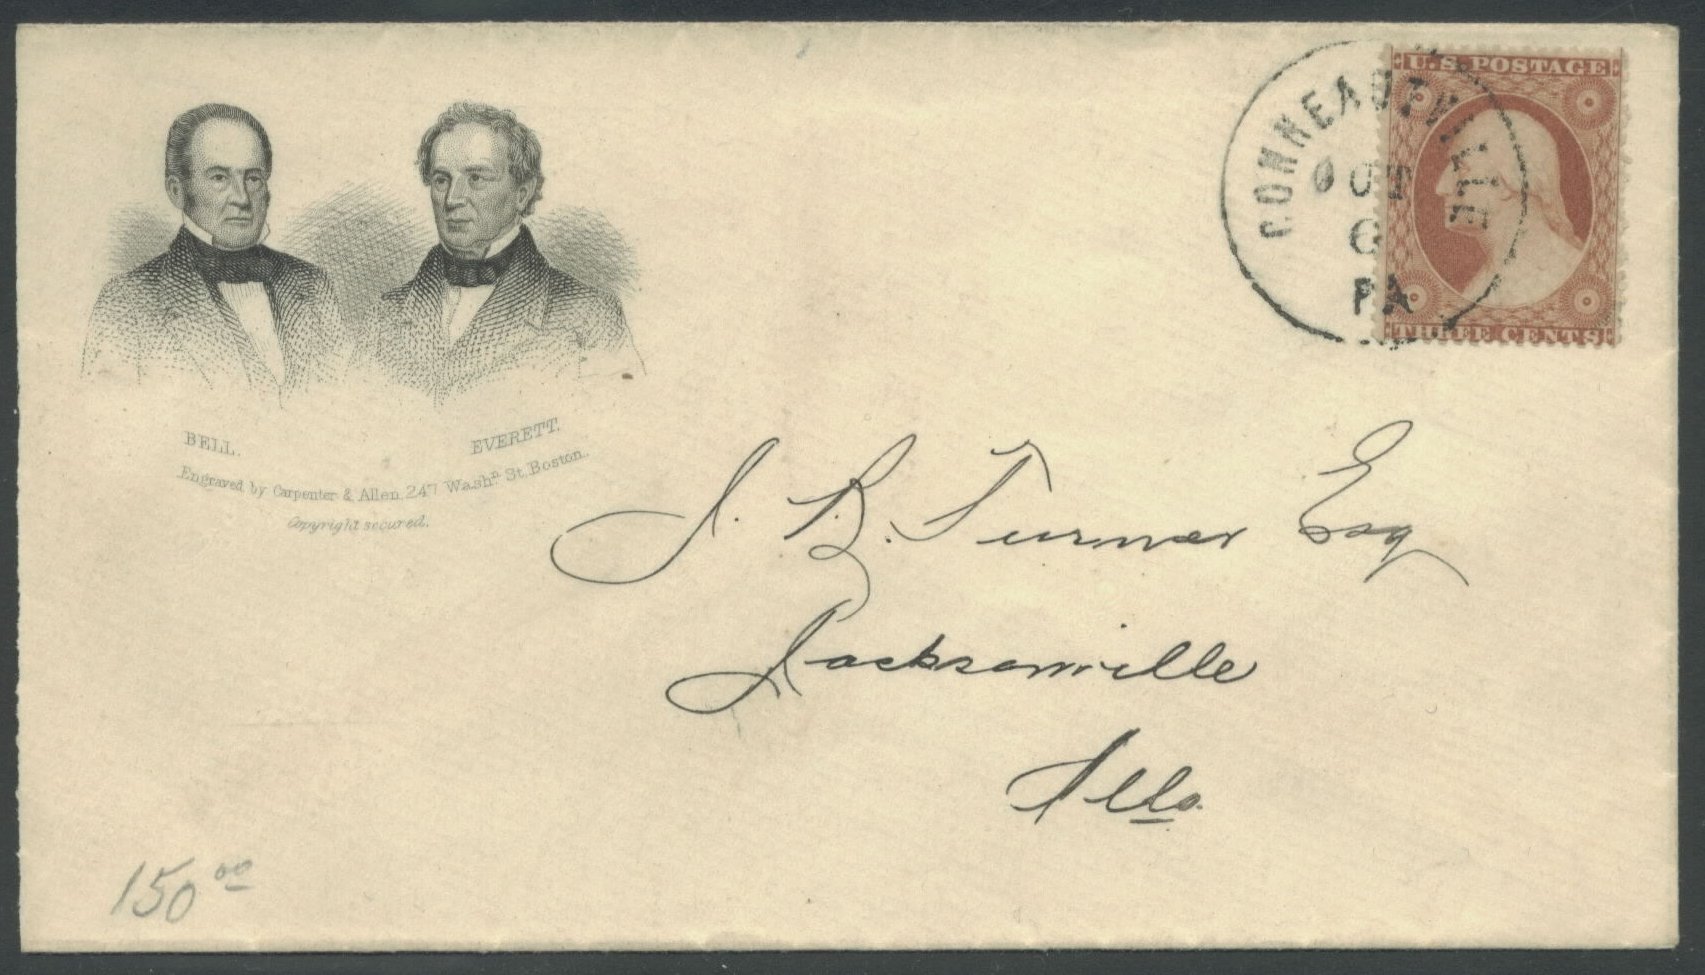 BELL.
EVERETT.
Engraved by Carpenter & Allen, 247 Washn. St. Boston.
Copyright secured.
CONNEAUTVILLE
OCT
6
PA
U.S. POSTAGE
THREE CENTS
J. B. Turner Esq
Jacksonville
Ills.
150 00